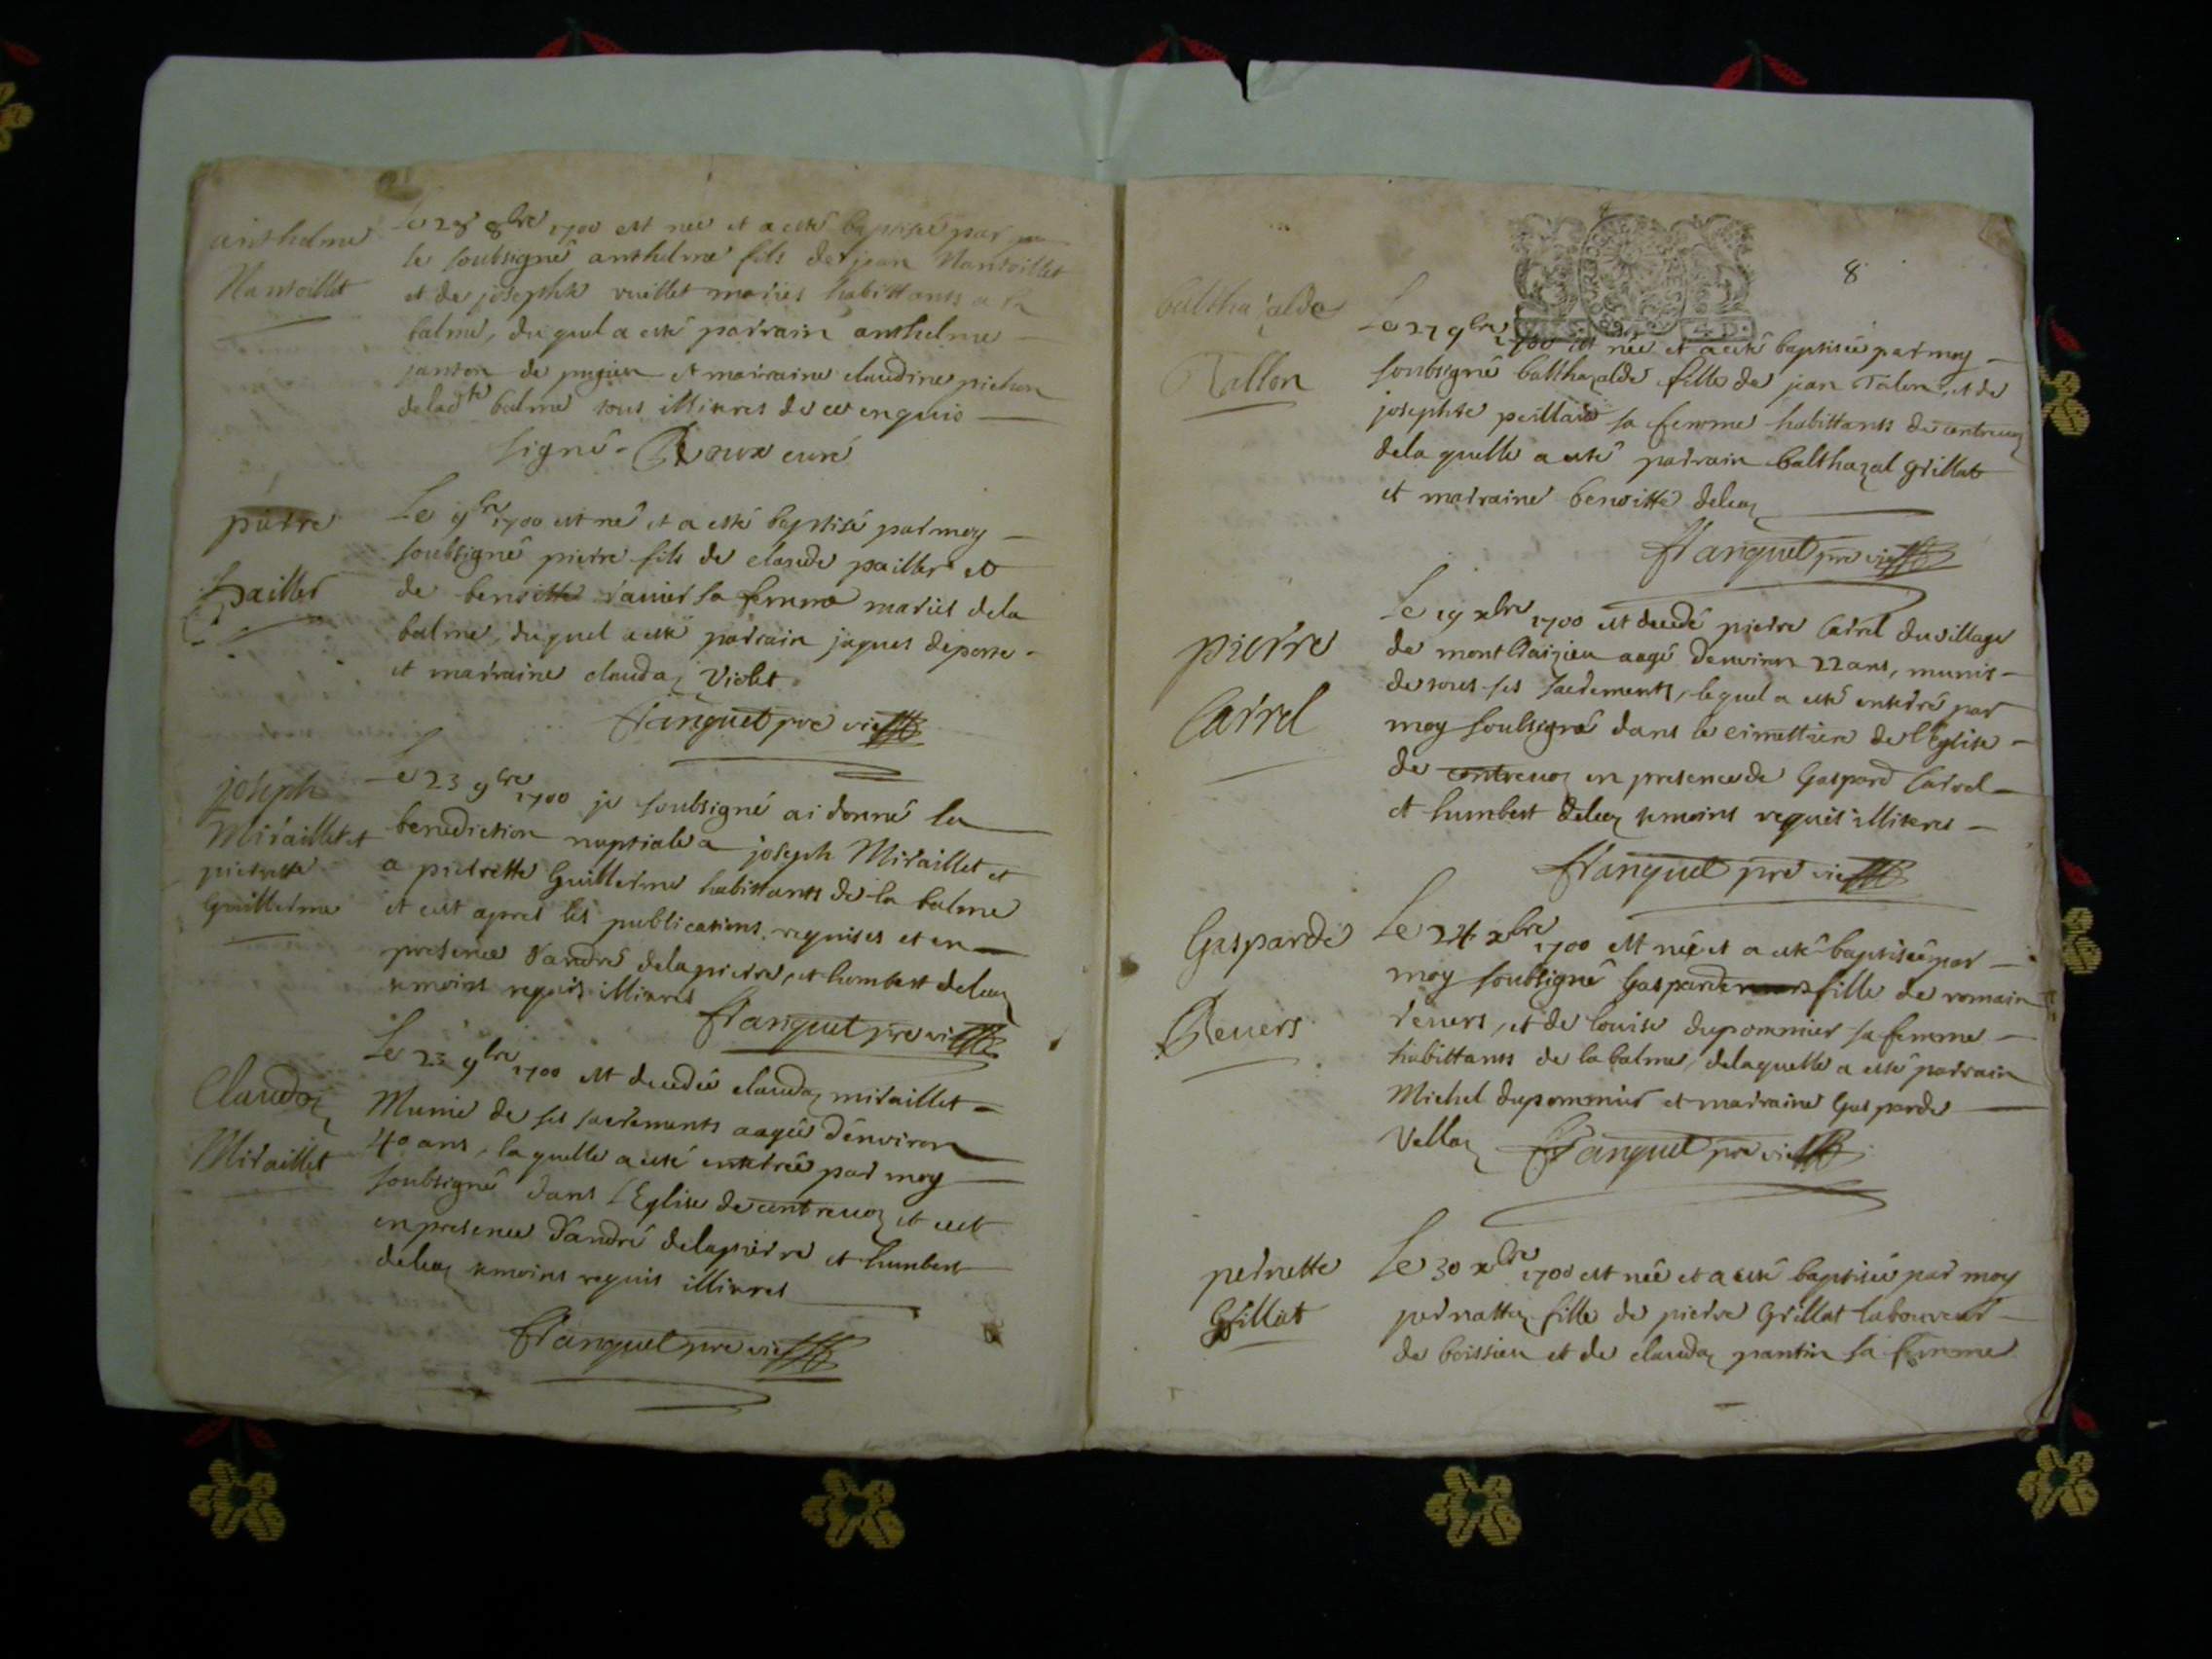 anthelme
Nantoillet
Le 28 8bre 1700 est née et a esté baptisé par
le soubsigné anthelme fils de jean Nantoillet
et de josephte vuillet mariés habittants a la
balme, du quel a esté parrain anthelme
janton de pugieu et marraine claudine pichon
de ladte balme tous illitrés de ce enquis
signé Roux curé
pierre
pailler
Le 9bre 1700 est né et a esté baptisé par moy
soubsigné pierre fils de claude pailler et
de benoitte ravier sa femme mariés de la
balme, du quel a esté parrain jaques deporte
et marraine clauda Violet
franquet pre vic
joseph
Miraillet et
pierrette
Guillerme
Le 23 9bre 1700 je soubsigné ai donné la
benediction nuptiale a joseph Miraillet et
a pierrette Guillerme habittants de la balme
et cest apres les publications requises et en
presence d'andré delapierre, et humbert deleaz
temoins requis illitrés franquet pre vic
Claudaz
Miraillet
Le 23 9bre 1700 est decedée claudaz miraillet
Munie de ses sacrements aagée d'environ
40 ans, la quelle a esté enterrée par moy
soubsigné dans l'Eglise de contrevoz et cest
en presence d'andré delapierre et humbert
deleaz temoins requis illitrés
franquet pre vic
8
balthazalde
Tallon
Le 27 9bre 1700 est née et a esté baptisée par moy
soubsigné balthazalde fille de jean Talon, et de
josephte peillard sa femme habittants de contrevoz
de la quelle a esté parrain balthazal grillat
et marraine benoitte deleaz
franquet pre vic
pierre
Carrel
Le 19 xbre 1700 est decedé pierre Carrel du village
de montbraizieu aagé d'environ 22 ans, munis
de tous ses sacrements, lequel a esté enterré par
moy soubsigné dans le cimettiere de l'Eglise
de contrevoz en presence de Gaspard Carrel
et humbert deleaz temoins requis illitrés
franquet pre vic
Gasparde
Revers
Le 24 xbre 1700 est née et a esté baptisée par
moy soubsigné Gasparde fille de romain
revers, et de louise dupommier sa femme
habittants de la balme, de laquelle a esté parrain
Michel dupommier et marraine Gasparde
Vellaz franquet pre vic
pernette
Grillat
Le 30 xbre 1700 est née et a esté baptisée par moy
pernattaz fille de pierre Grillat laboureur
de boissieu et de claudaz pantin sa femme